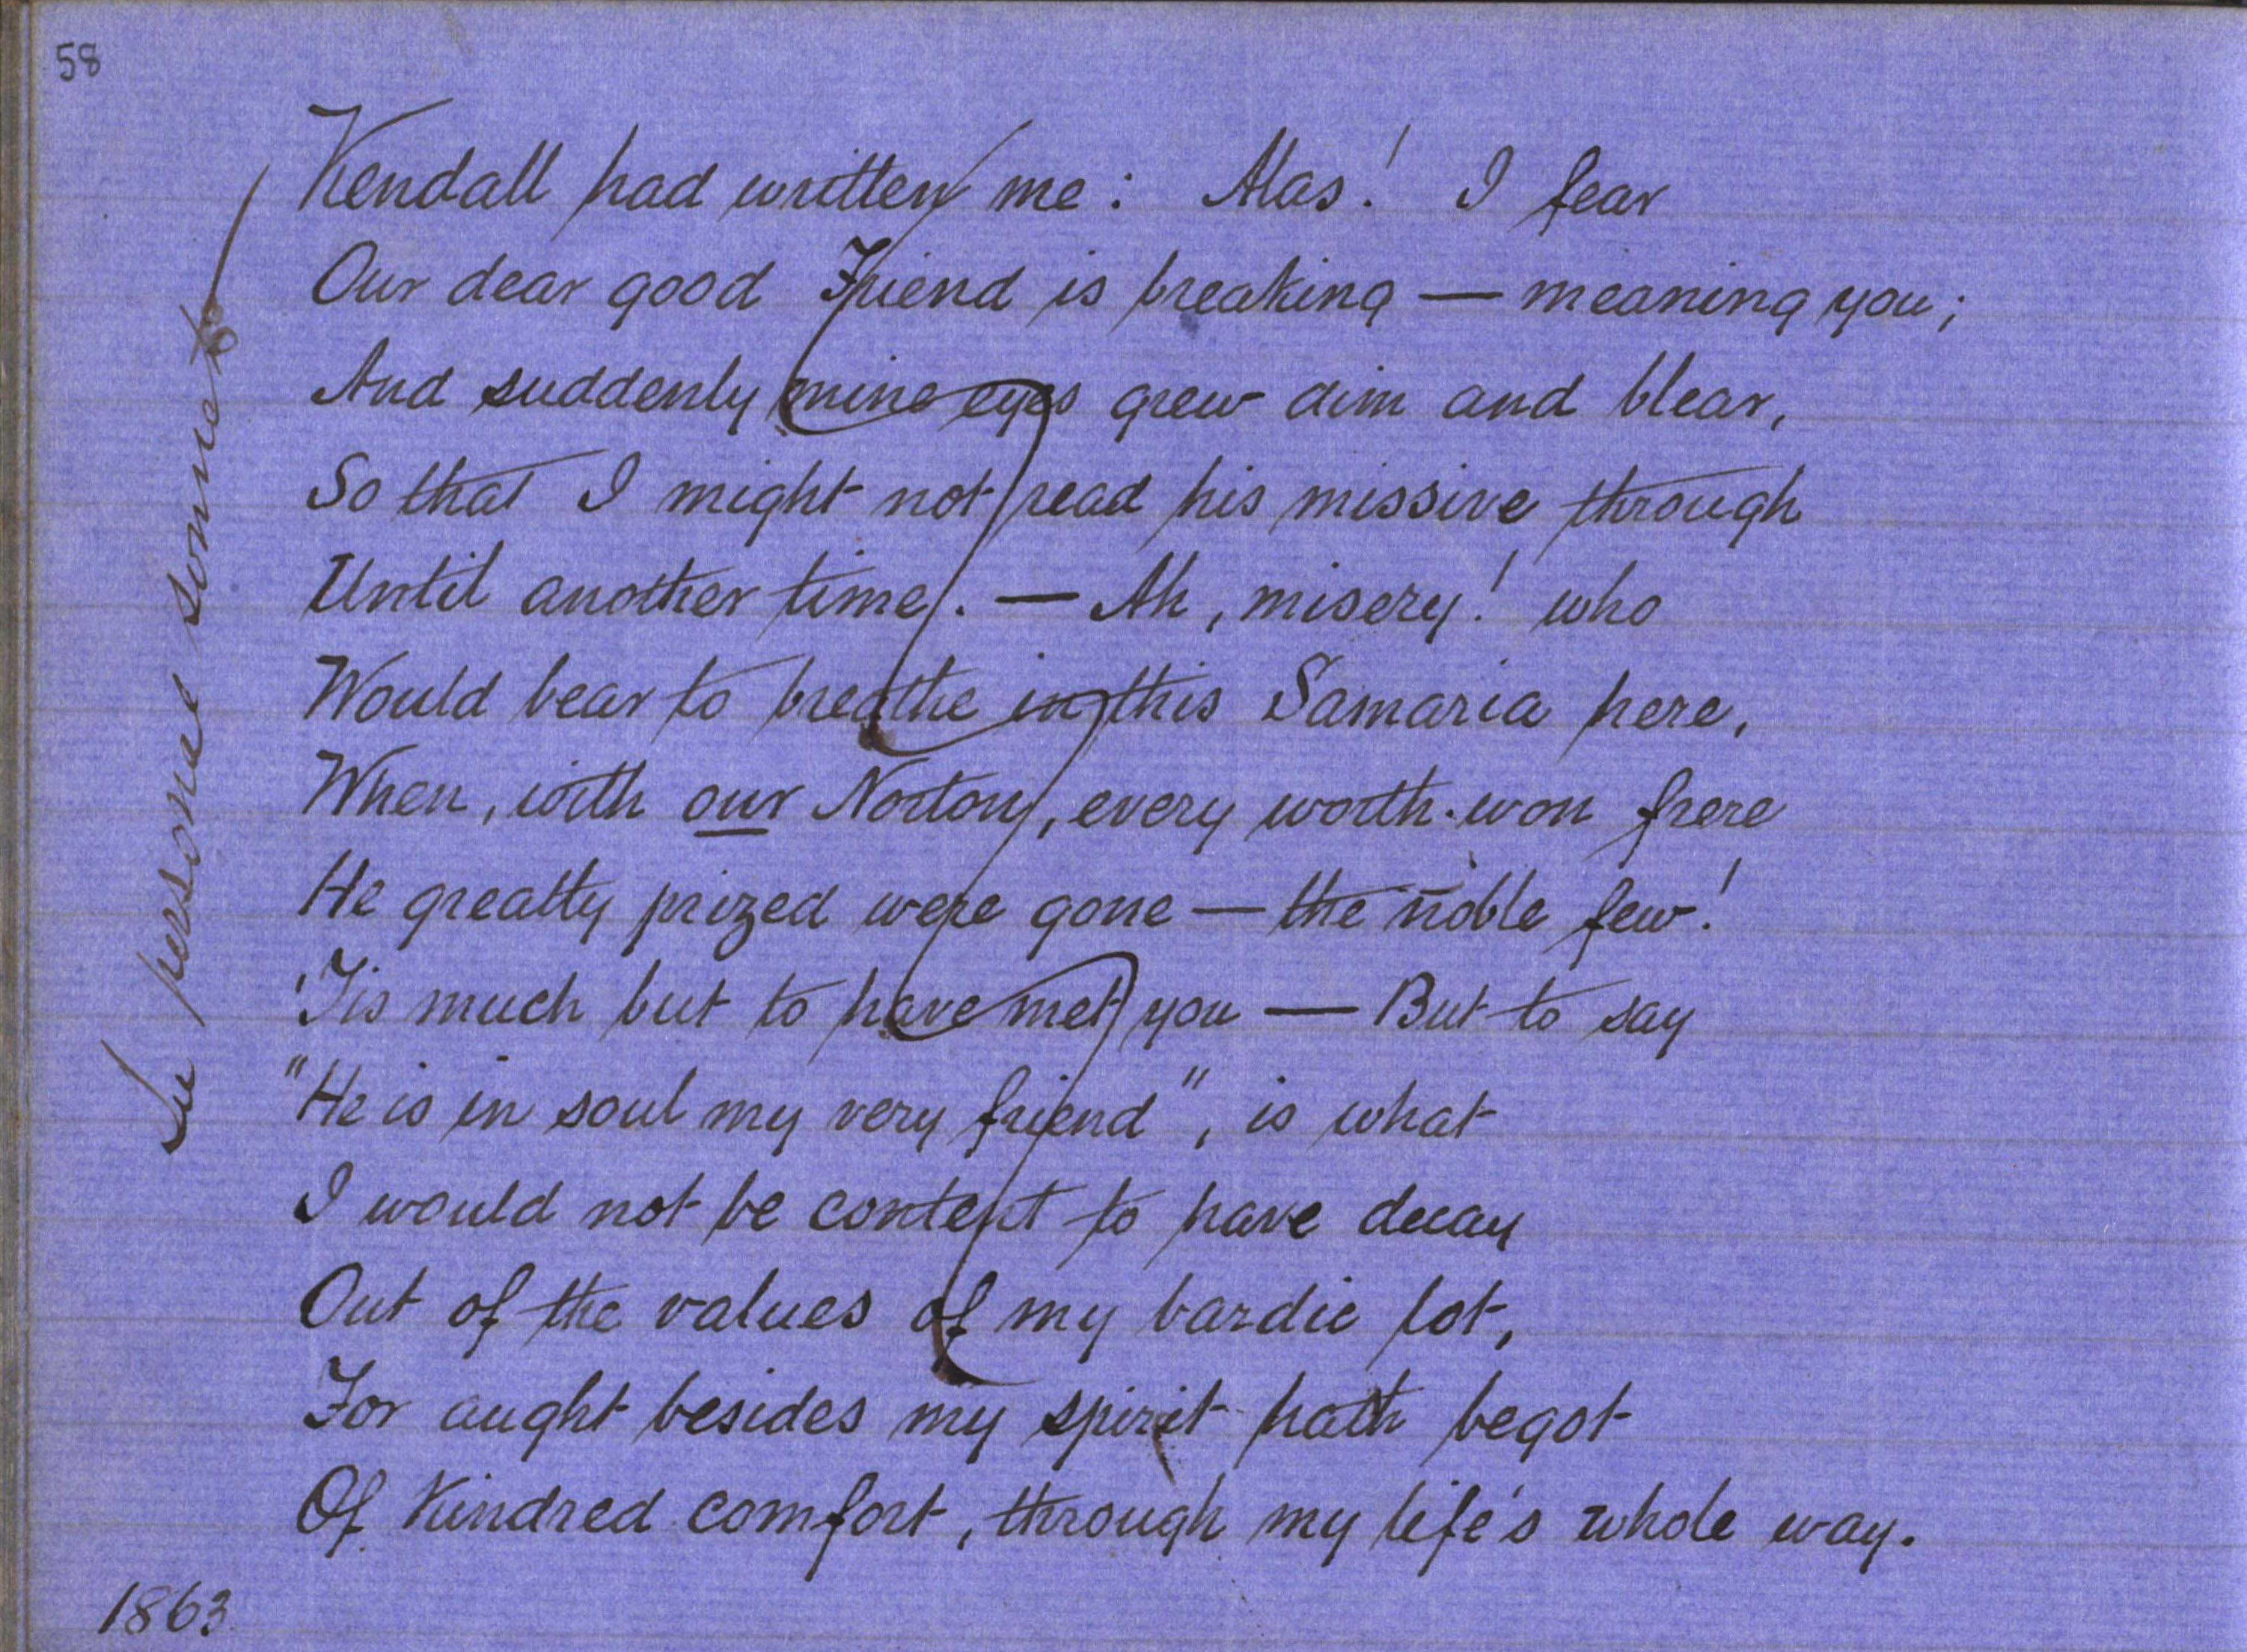 58
Kendall had written me: Alas! I fear
Our dear good Friend is breaking — meaning you;
And suddenly mine eyes grew dim and blear,
So that I might not read his missive through
Until another time. — Ah, misery! who
Would bear to breathe in this Samaria here,
When, with our Norton, every worth-won frere
He greatly prized were gone — the noble few!
'Tis much but to have met you — But to say
"He is in soul my very friend", is what
I would not be content to have decay
Out of the values of my bardic lot,
For aught besides my spirit hath begot
Of Kindred comfort, through my life's whole way.
1863
personal sonnets